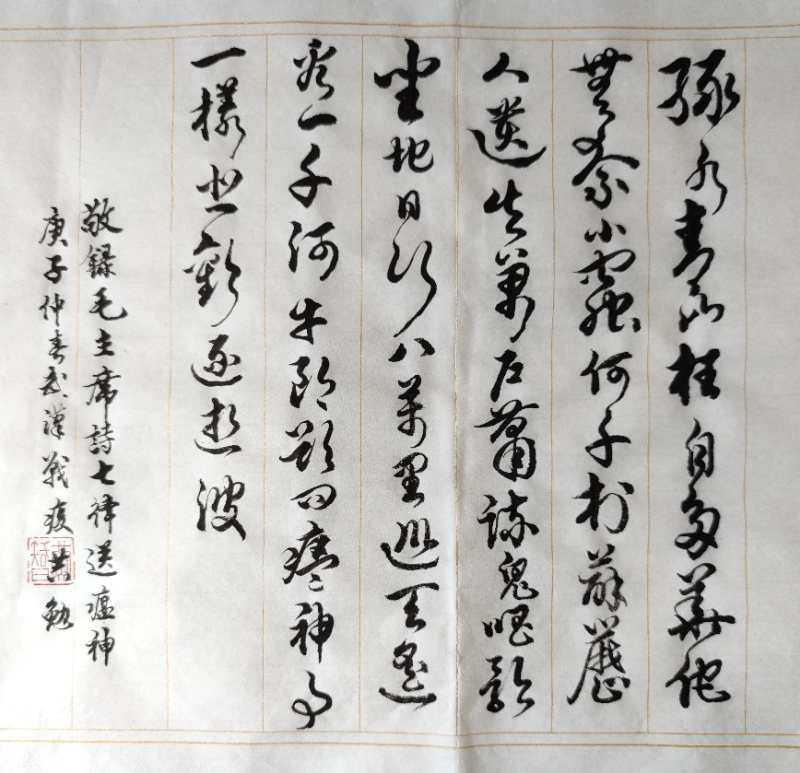 綠水青山枉自多華佗
無奈小蟲何千村薜藶
人遺矢萬户蕭疏鬼唱歌
坐地日行八萬里巡天遙
看一千河牛郎欲問瘟神事
一樣悲歡逐逝波
敬錄毛主席詩七律送瘟神
庚子仲春武漢戰疫共勉